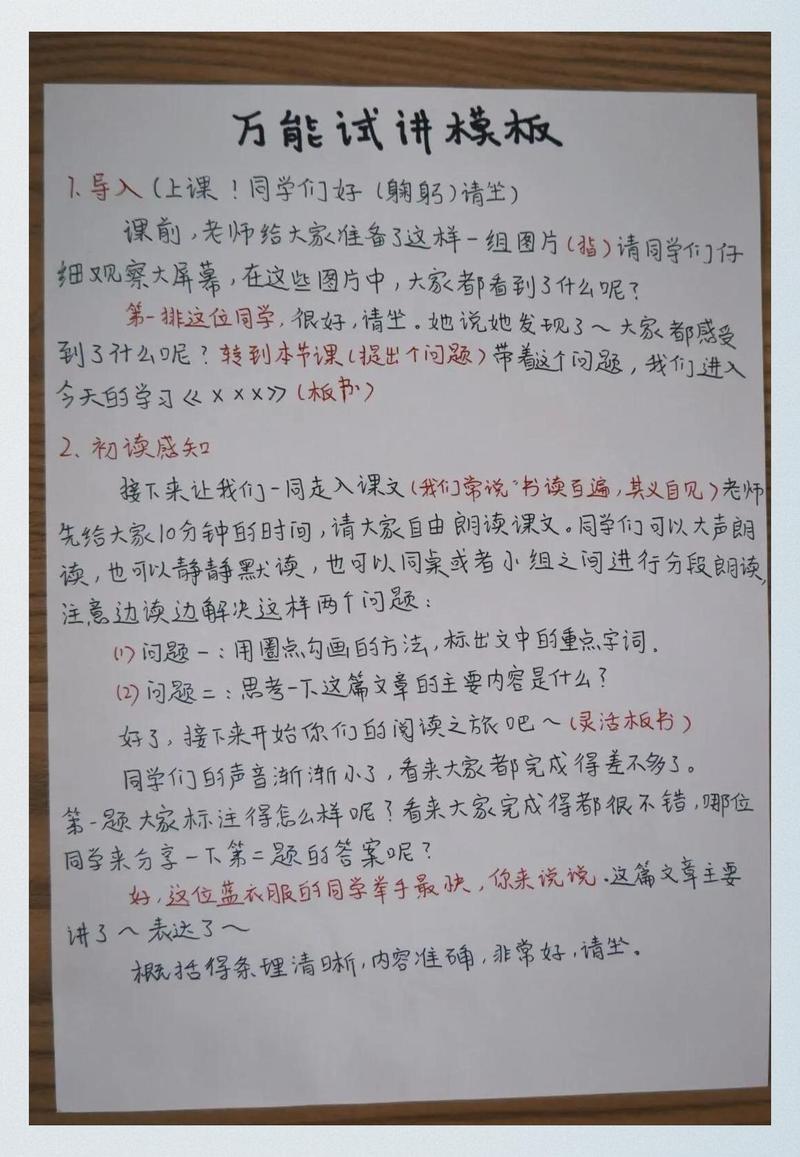 万能试讲模板
1.导入(上课！同学们好(鞠躬)请坐)
课前,老师给大家准备了这样一组图片(指)请同学们仔
细观察大屏幕,在这些图片中,大家都看到了什么呢?
第一排这位同学,很好,请坐。她说她发现了~大家都感受
到了什么呢?转到本节课(提出个问题)带着这个问题,我们进入
今天的学习《×××》(板书)
2.初读感知
接下来让我们一同走入课文(我们常说"书读百遍,其义自见)老师
先给大家10分钟的时间,请大家自由朗读课文。同学们可以大声朗
读,也可以静静默读,也可以同桌或者小组之间进行分段朗读,
注意边读边解决这样两个问题:
(1)问题一:用圈点勾画的方法,标出文中的重点字词.
(2)问题二:思考一下这篇文章的主要内容是什么?
好了,接下来开始你们的阅读之旅吧~(灵活板书)
同学们的声音渐渐小了,看来大家都完成得差不多了。
第一题大家标注得怎么样呢?看来大家完成得都很不错,哪位
同学来分享一下第二题的答案呢?
好,这位蓝衣服的同学举手最快,你来说说.这篇文章主要
讲了~表达了~
概括得条理清晰,内容准确,非常好,请坐。